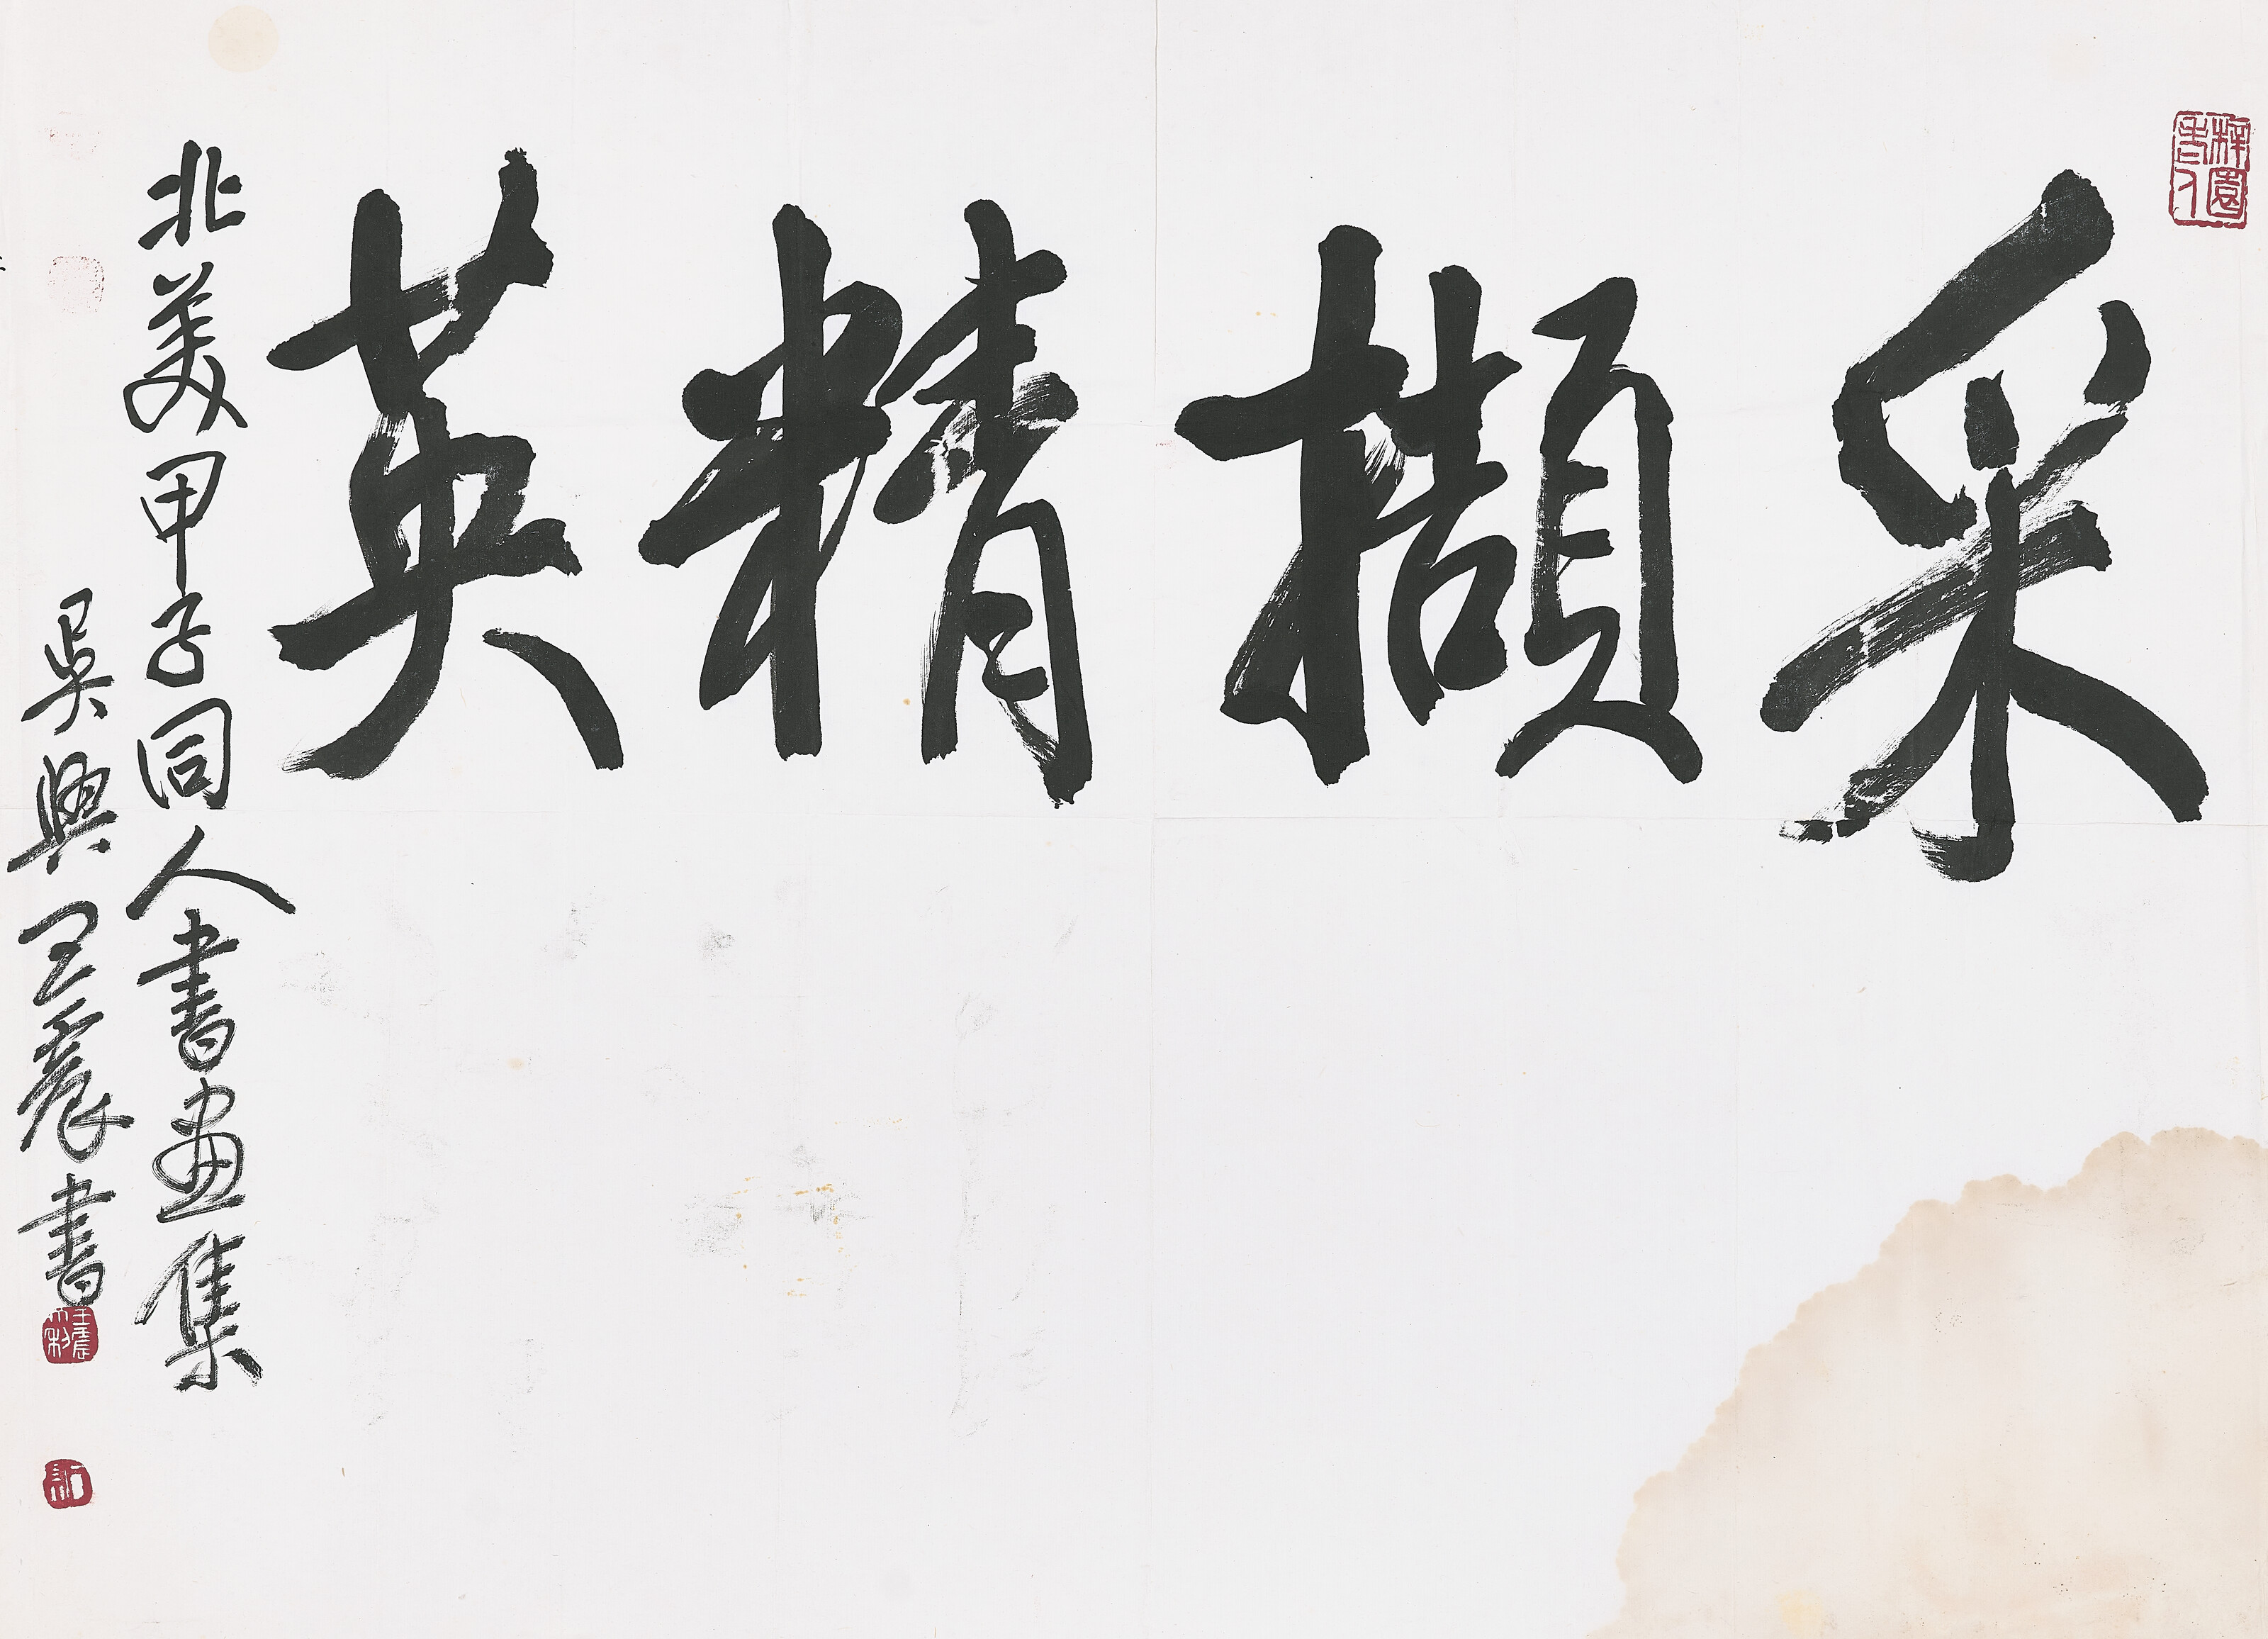 采擷精英
北美甲子同人書畫集
吳興王書